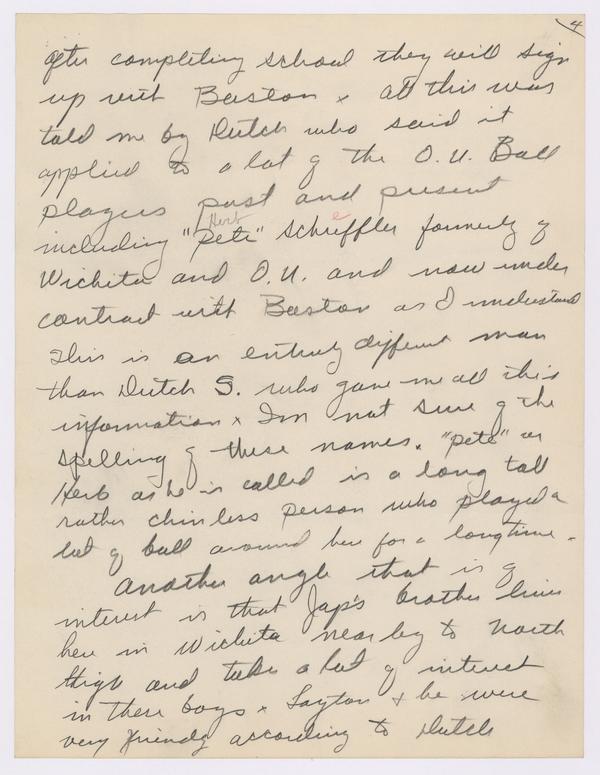 4
after completing school they will sign
up with Boston x all this was
told me by Dutch who said it
applied to a lot of the O.U. Ball
players past and present
Herb e
including "Pete" Schreffler formerly of
Wichita and O.U. and now under
contract with Boston as I understand
This is an entirely different man
than Dutch S. who gave me all this
information x Im not sure of the
spelling of these names. "Pete" or
Herb as he is called is a long tall
rather chinless person who played a
lot of ball around here for a long time.
Another angle that is of
interest is that Jap's brother lives
here in Wichita near by to North
High and take a lot of interest
in these boys x Layton & he were
very friendly according to Dutch